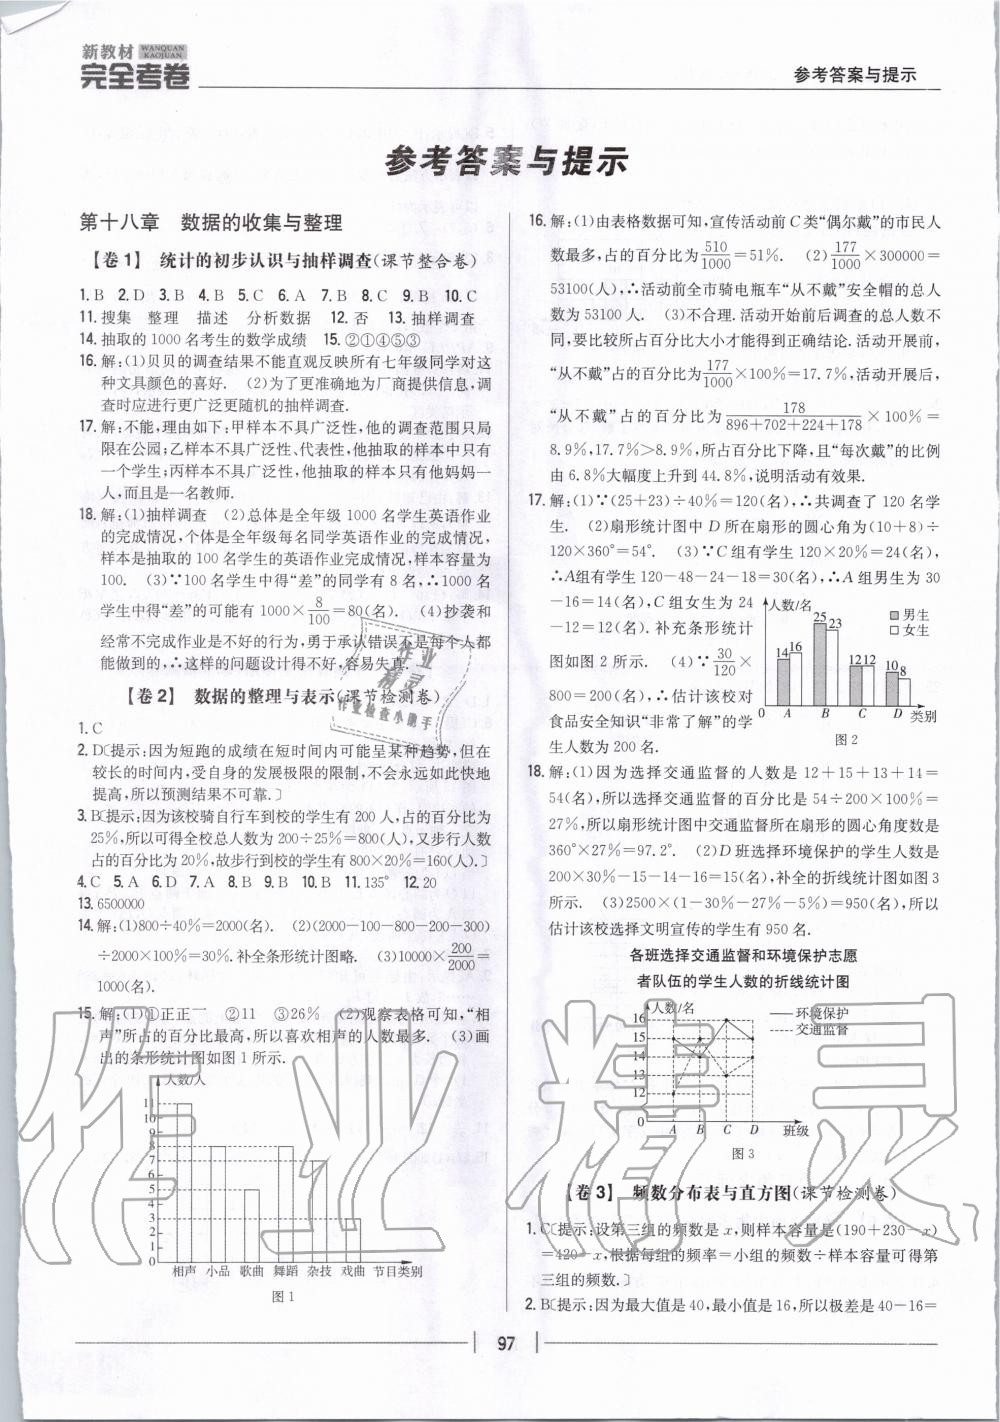 新教材 WANQUAN KAOJUAN
完全考卷
参考答案与提示
参考答案与提示
第十八章 数据的收集与整理
【卷1】 统计的初步认识与抽样调查(课节整合卷)
1. B 2. D 3. B 4. B 5. C 6. A 7. B 8. C 9. B 10. C
11. 搜集 整理 描述 分析数据 12. 否 13. 抽样调查
14. 抽取的1000名考生的数学成绩 15. ②①④⑤③
16. 解:(1)贝贝的调查结果不能直观反映所有七年级同学对这
种文具颜色的喜好. (2)为了更准确地为厂商提供信息,调
查时应进行更广泛更随机的抽样调查.
17. 解:不能,理由如下:甲样本不具广泛性,他的调查范围只局
限在公园;乙样本不具广泛性、代表性,他抽取的样本中只有
一个学生;丙样本不具广泛性,他抽取的样本只有他妈妈一
人,而且是一名教师.
18. 解:(1)抽样调查 (2)总体是全年级1000名学生英语作业
的完成情况,个体是全年级每名同学英语作业的完成情况,
样本是抽取的100名学生的英语作业完成情况,样本容量为
100. (3)∵100名学生中得“差”的同学有8名,∴1000名
学生中得“差”的可能有1000×8/100=80(名). (4)抄袭和
经常不完成作业是不好的行为,勇于承认错误不是每个人都
能做到的,∴这样的问题设计得不好,容易失真.
【卷2】 数据的整理与表示(课节检测卷)
1. C
2. D〔提示:因为短跑的成绩在短时间内可能呈某种趋势,但在
较长的时间内,受自身的发展极限的限制,不会永远如此快地
提高,所以预测结果不可靠.〕
3. B〔提示:因为该校骑自行车到校的学生有200人,占的百分比为
25%,所以可得全校总人数为200÷25%=800(人),又步行人数
占的百分比为20%,故步行到校的学生有800×20%=160(人).〕
4. C 5. A 6. D 7. A 8. B 9. B 10. B 11. 135° 12. 20
13. 6500000
14. 解:(1)800÷40%=2000(名). (2)(2000-100-800-200-300)
÷2000×100%=30%. 补全条形统计图略. (3)10000×200/2000=
1000(名).
15. 解:(1)①正正一 ②11 ③26% (2)观察表格可知,“相
声”所占的百分比最高,所以喜欢相声的人数最多. (3)画
出的条形统计图如图1所示.
人数/人
11
10
9
8
7
6
5
4
3
2
1
0
相声 小品 歌曲 舞蹈 杂技 戏曲 节目类别
图1
16. 解:(1)由表格数据可知,宣传活动前C类“偶尔戴”的市民人
数最多,占的百分比为510/1000=51%. (2)177/1000×300000=
53100(人),∴活动前全市骑电瓶车“从不戴”安全帽的总人
数为53100人. (3)不合理. 活动开始前后调查的总人数不
同,要比较所占百分比大小才能得到正确结论. 活动开展前,
“从不戴”占的百分比为177/1000×100%=17.7%,活动开展后,
“从不戴”占的百分比为178/(896+702+224+178)×100%=
8.9%,17.7%>8.9%,所占百分比下降,且“每次戴”的比例
由6.8%大幅度上升到44.8%,说明活动有效果.
17. 解:(1)∵(25+23)÷40%=120(名),∴共调查了120名学
生. (2)扇形统计图中D所在扇形的圆心角为(10+8)÷
120×360°=54°. (3)∵C组有学生120×20%=24(名),
∴A组有学生120-48-24-18=30(名),∴A组男生为30
-16=14(名),C组女生为24
-12=12(名). 补充条形统计
图如图2所示. (4)∵30/120×
800=200(名),∴估计该校对
食品安全知识“非常了解”的学
生人数为200名.
人数/名
男生
女生
14 16 25 23 12 12 10 8
0 A B C D 类别
图2
18. 解:(1)因为选择交通监督的人数是12+15+13+14=
54(名),所以选择交通监督的百分比是54÷200×100%=
27%,所以扇形统计图中交通监督所在扇形的圆心角度数是
360°×27%=97.2°. (2)D班选择环境保护的学生人数是
200×30%-15-14-16=15(名),补全的折线统计图如图3
所示. (3)2500×(1-30%-27%-5%)=950(名),所以
估计该校选择文明宣传的学生有950名.
各班选择交通监督和环境保护志愿
者队伍的学生人数的折线统计图
人数/名
环境保护
交通监督
16
15
14
13
12
0
A B C D 班级
图3
【卷3】 频数分布表与直方图(课节检测卷)
1. C〔提示:设第三组的频数是x,则样本容量是(190+230-x)
=420-x,根据每组的频率=小组的频数÷样本容量可得第
三组的频数.〕
2. B〔提示:因为最大值是40,最小值是16,所以极差是40-16=
97
作业精灵
作业检查小助手
作业精灵